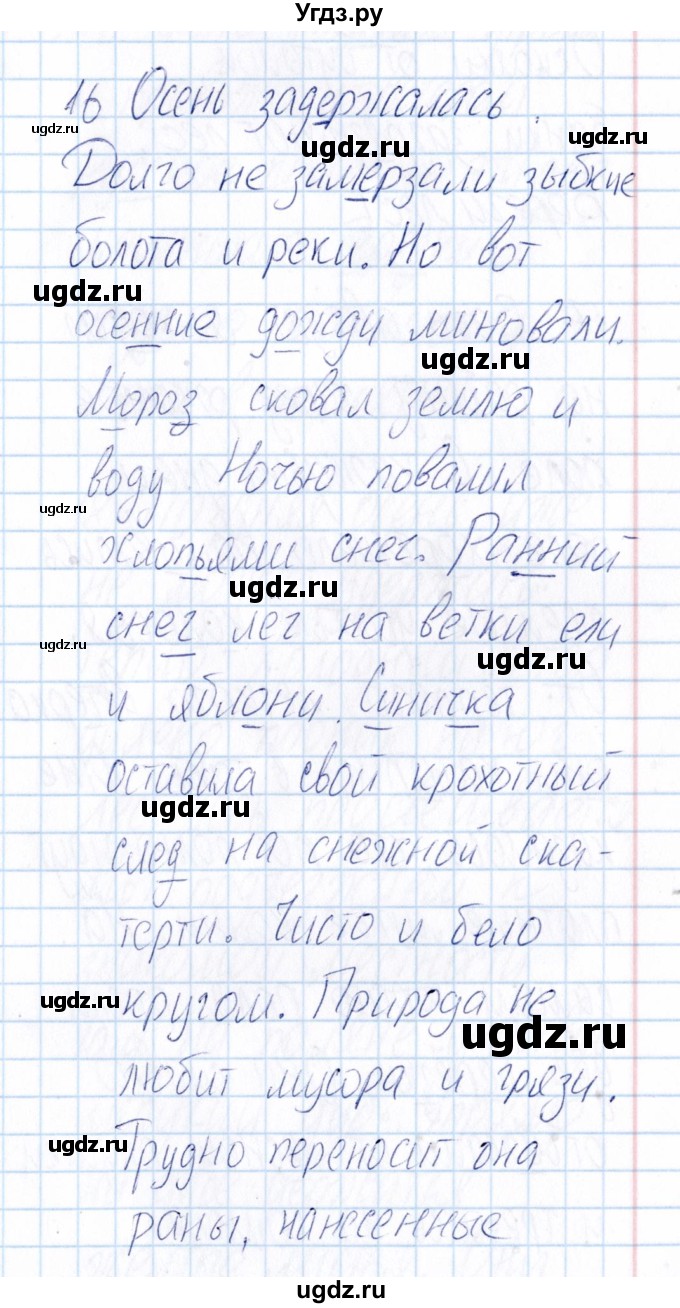 Угдз.ру
16 Осень задержалась.
ugdz.ru ugdz.ru ugdz.ru
Долго не замерзали зыбкие
болота и реки. Но вот
ugdz.ru
осенние дожди миновали.
ugdz.ru
Мороз сковал землю и
воду Ночью повалил
ugdz.ru
хлопьями снег. Ранний
ugdz.ru
снег лег на ветки ели
ugdz.ru ugdz.ru
и яблони. Синичка
оставила свой крохотный
ugdz.ru
след на снежной ска-
терти. Чисто и бело
ugdz.ru
кругом. Природа не
ugdz.ru
любит мусора и грязи.
ugdz.ru
Трудно переносит она
раны, нанесенные
ugdz.ru